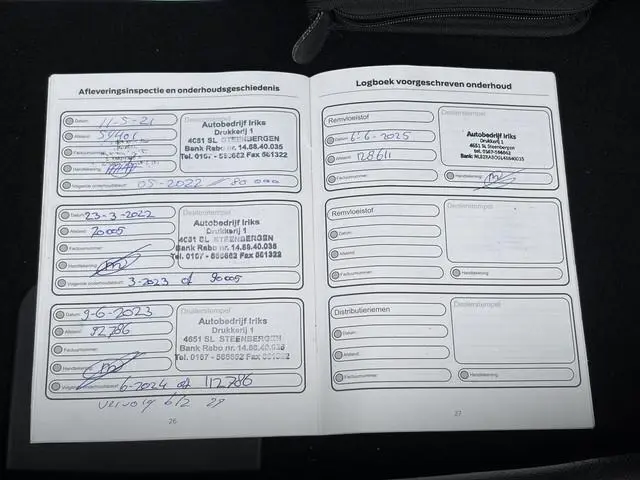 Afleveringsinspectie en onderhoudsgeschiedenis
Datum: 11-5-21
Afstand: 59401
Factuurnummer:
Handtekening:
Volgende onderhoudsbeurt: 05-2022 / 80 000
Dealerstempel
Autobedrijf Iriks
Drukkerij 1
4651 SL STEENBERGEN
Bank Rabo nr. 14.88.40.035
Tel. 0167 - 566662 Fax 561322
Datum: 23-3-2022
Afstand: 70005
Factuurnummer:
Handtekening:
Volgende onderhoudsbeurt: 3-2023 of 90005
Autobedrijf Iriks
Drukkerij 1
4651 SL STEENBERGEN
Bank Rabo nr. 14.88.40.035
Tel. 0167 - 566662 Fax 561322
Datum: 9-6-2023
Afstand: 92786
Factuurnummer:
Handtekening:
Volgende onderhoudsbeurt: 6-2024 of 112786
Dealerstempel
Autobedrijf Iriks
Drukkerij 1
4651 SL STEENBERGEN
Bank Rabo nr. 14.88.40.035
Tel. 0167 - 566662 Fax 561322
vervolg blz 29
26
Logboek voorgeschreven onderhoud
Remvloeistof
Datum: 6-6-2025
Afstand: 128611
Factuurnummer:
Dealerstempel
Autobedrijf Iriks
Drukkerij 1
4651 SL Steenbergen
tel. 0167-566662
Handtekening:
Remvloeistof
Datum:
Afstand:
Factuurnummer:
Dealerstempel
Handtekening:
Distributieriemen
Datum:
Afstand:
Factuurnummer:
Dealerstempel
Handtekening:
27